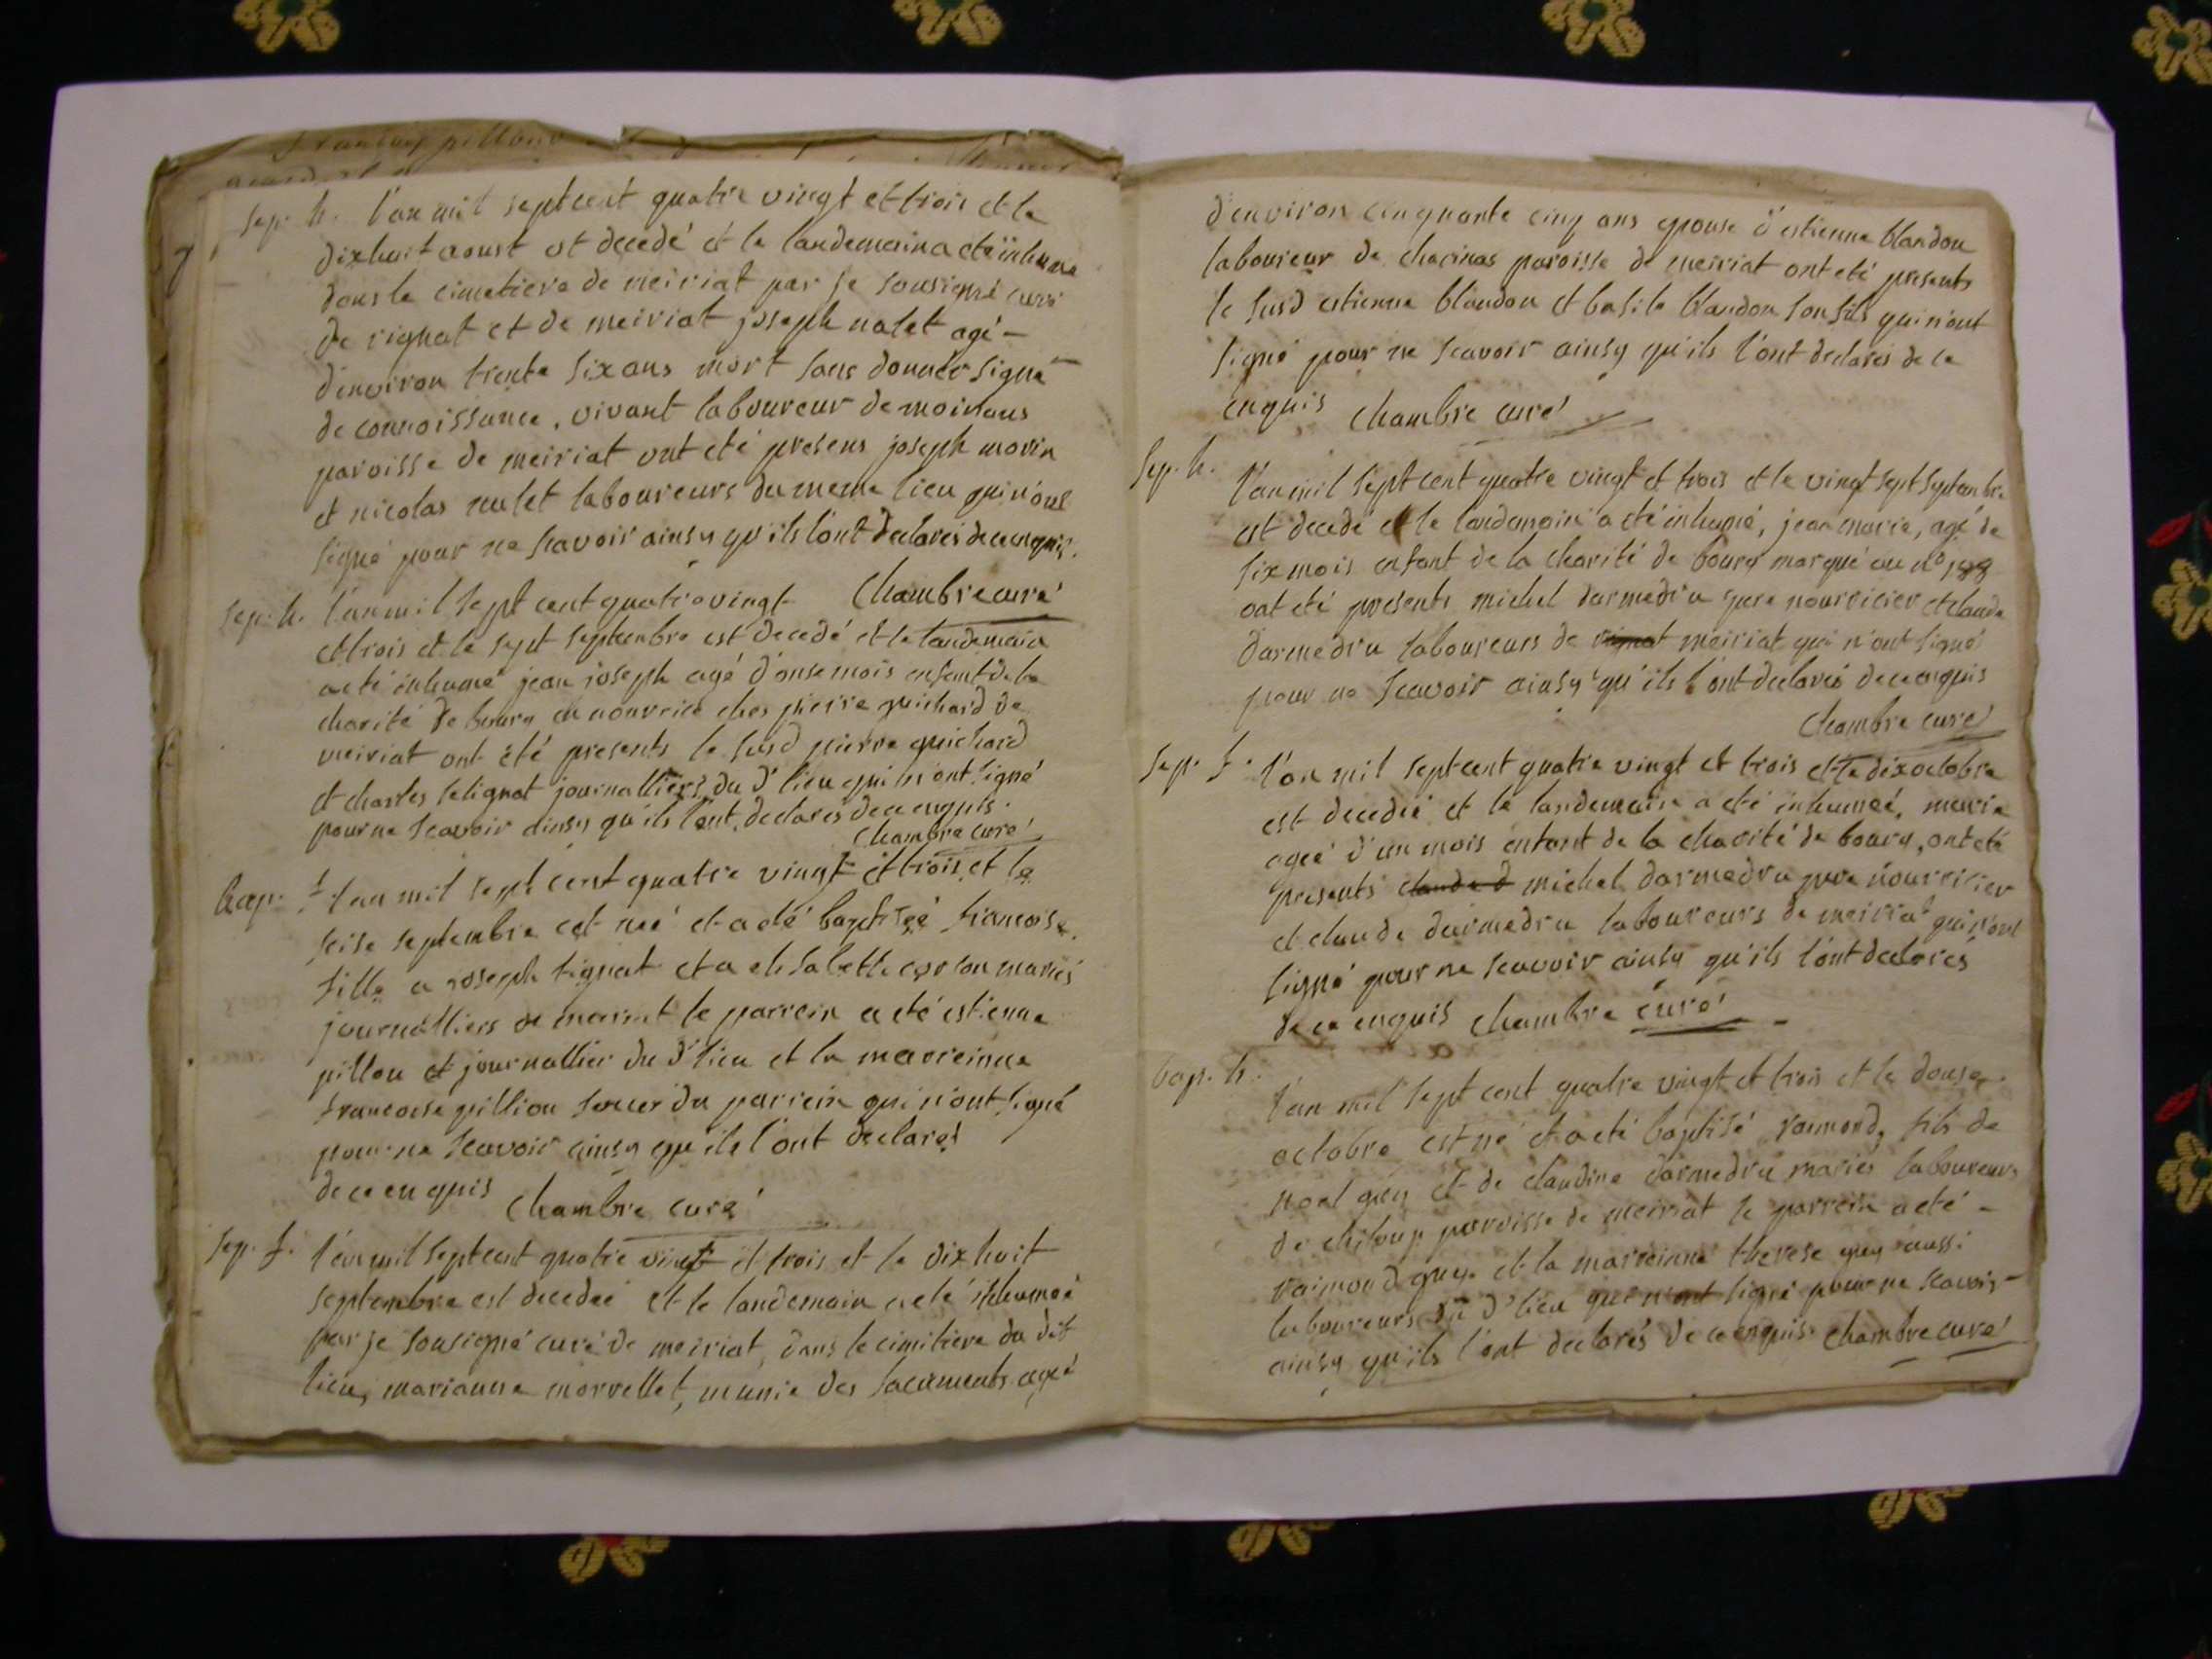 sep. h. l'an mil sept cent quatre vingt et trois et le
dixhuit aoust est decedé et le landemain a été inhumé
dans le cimetiere de meiriat par je sousigné curé
de rignat et de meiriat joseph nalet agé
d'environ trente six ans mort sans donner signe
de connoissance, vivant laboureur de
paroisse de meiriat ont eté presens joseph morin
et nicolas nalet laboureurs du meme lieu qui n'ont
signé pour ne scavoir ainsy qu'ils l'ont declarés de ce enquis.
Chambre curé
sep. h. l'an mil sept cent quatre vingt
et trois et le sept septembre est decedé et le landemain
a eté inhumé jean joseph agé d'onse mois enfant de la
charité de bourg en nourrice ches pierre guichard de
meiriat ont été presents le susd pierre guichard
et charles salignat journalliers du dt lieu qui n'ont signé
pour ne scavoir ainsy qu'ils l'ont declarés de ce enquis.
Chambre curé
bap. f. l'an mil sept cent quatre vingt et trois et le
seise septembre est neé et a eté baptiseé francoise
fille a joseph et a elisabeth mariés
journalliers de meiriat le parrein a eté estienne
pillon et journallier du dt lieu et la marreinne
francoise pillion soeur du parrein qui n'ont signé
pour ne scavoir ainsy qu'ils l'ont declarés
de ce enquis Chambre curé
sep. f. l'an mil sept cent quatre vingt et trois et le dix huit
septembre est decedeé et le landemain a eté inhumeé
par je sousigné curé de meiriat, dans le cimitiere du dit
lieu, marianne morvellet, munie des sacrements ageé
d'environ cinquante cinq ans epouse d'estienne blandon
laboureur de chacinas paroisse de meiriat ont eté presents
le susd estienne blandon et basile blandon son fils qui n'ont
signé pour ne scavoir ainsy qu'ils l'ont declarés de ce
enquis Chambre curé
sep. h. l'an mil sept cent quatre vingt et trois et le vingt sept septembre
est decedé et le landemain a eté inhumé, jean marie, agé de
six mois enfant de la charité de bourg marqué au no
ont eté presents michel darmedru pere nourricier et claude
darmedru laboureurs de meiriat qui n'ont signé
pour ne scavoir ainsy qu'ils l'ont declarés de ce enquis
Chambre curé
sep. f. l'an mil sept cent quatre vingt et trois et le dix octobre
est decedeé et le landemain a eté inhumeé, marie
ageé d'un mois enfant de la charité de bourg, ont eté
presents claude d michel darmedru pere nourricier
et claude darmedru laboureurs de meiriat qui n'ont
signé pour ne scavoir ainsy qu'ils l'ont declarés
de ce enquis Chambre curé
bap. h. l'an mil sept cent quatre vingt et trois et le douse
octobre est né et a eté baptisé raimond, fils de
noel guy et de claudine darmedru mariés laboureurs
de chiloup paroisse de meiriat le parrein a eté
raimond guy et la marreinne therese guy aussi
laboureurs du dt lieu qui n'ont signé pour ne scavoir
ainsy qu'ils l'ont declarés de ce enquis Chambre curé